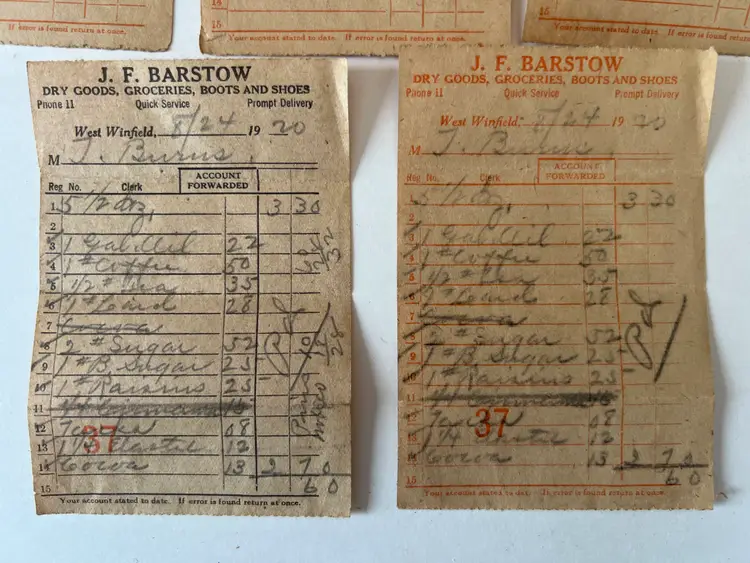 15
Your account stated to date. If error is found return at once.
15
Your account stated to date. If error is found return at once.
J. F. BARSTOW
DRY GOODS, GROCERIES, BOOTS AND SHOES
Phone 11 Quick Service Prompt Delivery
West Winfield, 8/24 19 20
M T. Burns
Reg No. Clerk ACCOUNT FORWARDED
1 5 1/2 dz, 3 30
2
3 1 Gal Oil 22
4 1 # Coffee 50
5 1/2 # Tea 35
6 1 # Lard 28
7 Cocoa
8 2 # Sugar 52
9 1 # B. Sugar 25
10 1 # Raisins 25
11 1/4
12 08
13 1 1/4 Elastic 12
14 Cocoa 13 2 70
15 60
37
Pd
Your account stated to date. If error is found return at once.
J. F. BARSTOW
DRY GOODS, GROCERIES, BOOTS AND SHOES
Phone 11 Quick Service Prompt Delivery
West Winfield, 8/24 19 20
M T. Burns
Reg No. Clerk ACCOUNT FORWARDED
1 5 1/2 dz, 3 30
2
3 1 Gal Oil 22
4 1 # Coffee 50
5 1/2 # Tea 35
6 1 # Lard 28
7 Cocoa
8 2 # Sugar 52
9 1 # B. Sugar 25
10 1 # Raisins 25
11 1/4
12 08
13 1 1/4 Elastic 12
14 Cocoa 13 2 70
15 60
37
Pd
Your account stated to date. If error is found return at once.